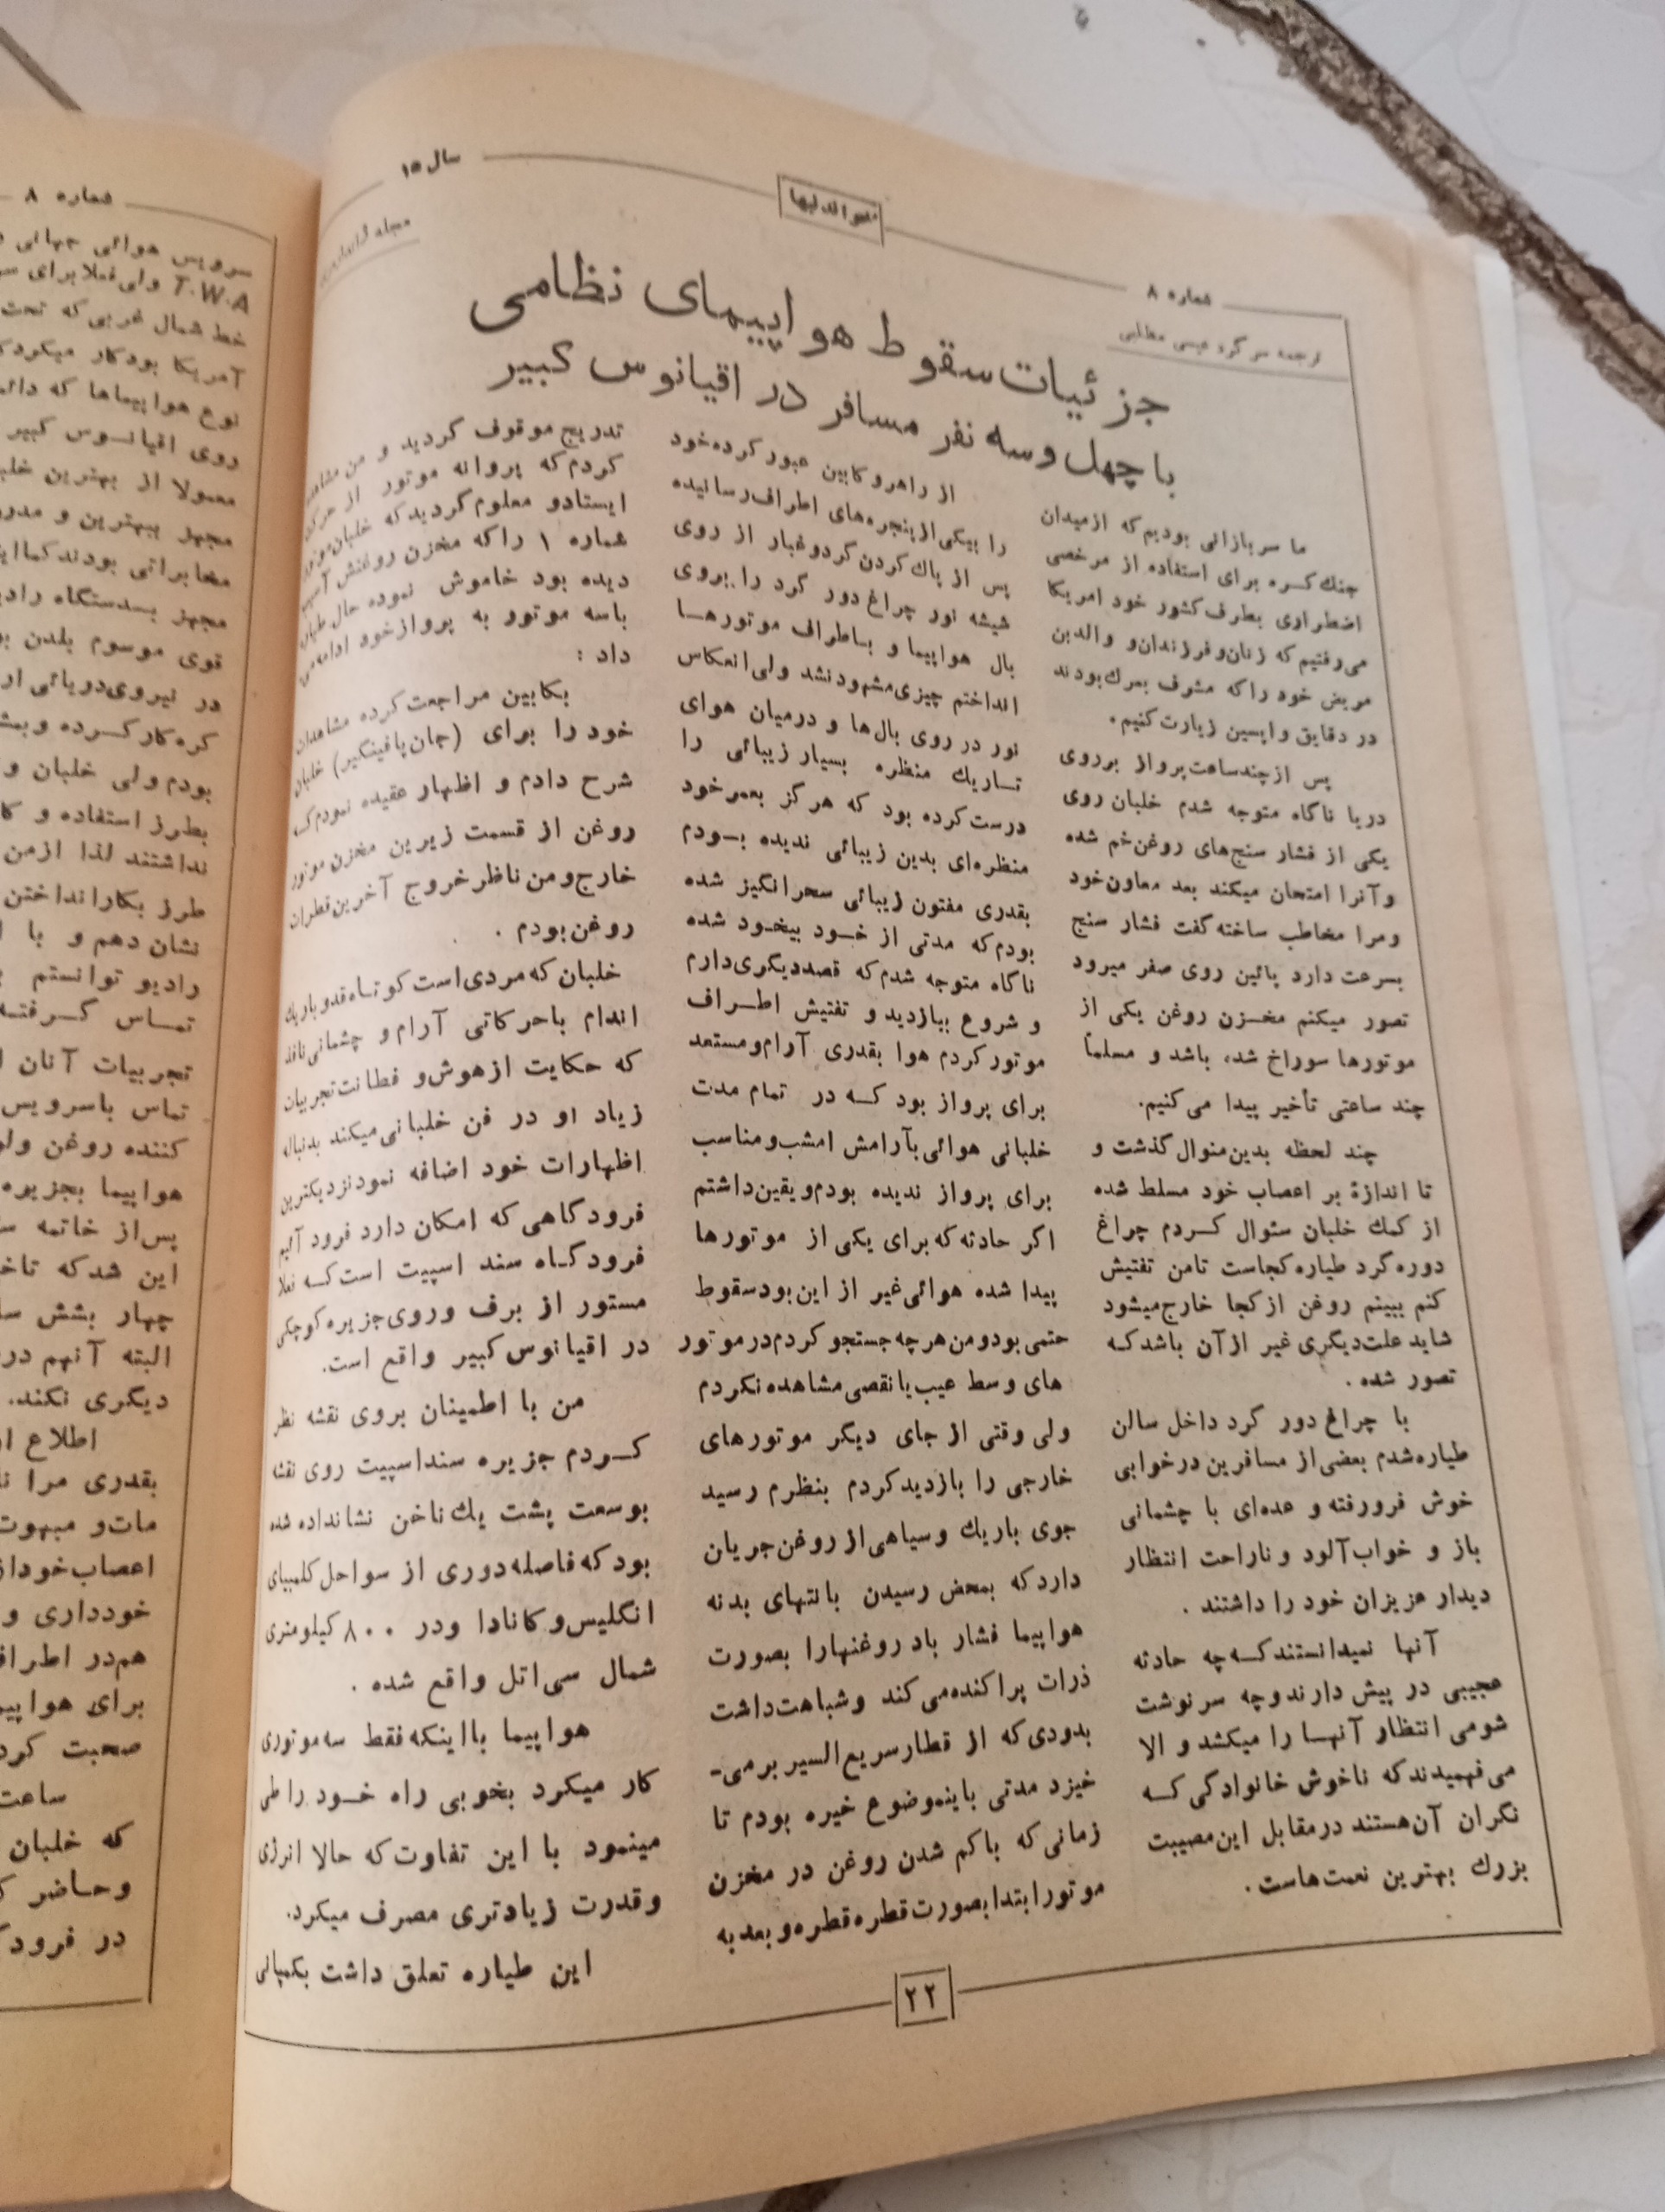 شماره ۸
سال ۱۵
ترجمه سرگرد عیسی مطلبی
مجله
جزئیات سقوط هواپیمای نظامی
با چهل و سه نفر مسافر در اقیانوس کبیر
ما سربازانی بودیم که از میدان
جنك کره برای استفاده از مرخصی
اضطراری بطرف کشور خود امریکا
می‌رفتیم که زنان و فرزندان و والدین
مریض خود را که مشرف بمرك بودند
در دقایق واپسین زیارت کنیم.
پس از چند ساعت پرواز بر روی
دریا ناگاه متوجه شدم خلبان روی
یکی از فشار سنج‌های روغن خم شده
و آنرا امتحان میکند بعد معاون خود
و مرا مخاطب ساخته گفت فشار سنج
بسرعت دارد پائین روی صفر میرود
تصور میکنم مخزن روغن یکی از
موتورها سوراخ شده باشد و مسلماً
چند ساعتی تأخیر پیدا می‌کنیم.
چند لحظه بدین منوال گذشت و
تا اندازهٔ بر اعصاب خود مسلط شده
از کمك خلبان سئوال کردم چراغ
دوره گرد طیاره کجاست تا من تفتیش
کنم ببینم روغن از کجا خارج میشود
شاید علت دیگری غیر از آن باشد که
تصور شده .
با چراغ دور گرد داخل سالن
طیاره شدم بعضی از مسافرین در خوابی
خوش فرورفته و عده‌ای با چشمانی
باز و خواب‌آلود و ناراحت انتظار
دیدار عزیزان خود را داشتند .
آنها نمیدانستند که چه حادثه
عجیبی در پیش دارند و چه سرنوشت
شومی انتظار آنها را میکشد و الا
می‌فهمیدند که ناخوش خانوادگی که
نگران آن هستند در مقابل این مصیبت
بزرك بهترین نعمت‌هاست .
از راهرو کابین عبور کرده خود
را بیکی از پنجره‌های اطراف رسانیده
پس از پاك کردن گرد و غبار از روی
شیشه نور چراغ دور گرد را بروی
بال هواپیما و باطراف موتورها
انداختم چیزی مشهود نشد ولی انعکاس
نور در روی بال‌ها و درمیان هوای
تاریك منظره بسیار زیبائی را
درست کرده بود که هرگز بعمر خود
منظره‌ای بدین زیبائی ندیده بودم
بقدری مفتون زیبائی سحرانگیز شده
بودم که مدتی از خود بیخود شده
ناگاه متوجه شدم که قصد دیگری دارم
و شروع ببازدید و تفتیش اطراف
موتور کردم هوا بقدری آرام و مستعد
برای پرواز بود که در تمام مدت
خلبانی هوائی بآرامش امشب و مناسب
برای پرواز ندیده بودم و یقین داشتم
اگر حادثه که برای یکی از موتورها
پیدا شده هوائی غیر از این بود سقوط
حتمی بود و من هرچه جستجو کردم در موتور
های وسط عیب یا نقصی مشاهده نکردم
ولی وقتی از جای دیگر موتورهای
خارجی را بازدید کردم بنظرم رسید
جوی باریك و سیاهی از روغن جریان
دارد که بمحض رسیدن بانتهای بدنه
هواپیما فشار باد روغنها را بصورت
ذرات پراکنده می‌کند و شباهت داشت
بدودی که از قطار سریع السیر برمی-
خیزد مدتی باینموضوع خیره بودم تا
زمانی که با کم شدن روغن در مخزن
موتور ابتدا بصورت قطره قطره و بعد به
تدریج موقوف گردید و من
کردم که پروانه موتور از
ایستاد و معلوم گردید که خلبان موتور
شماره ۱ را که مخزن روغنش آسیب
دیده بود خاموش نموده حال طیاره
با سه موتور به پرواز خود ادامه
داد :
بکابین مراجعت کرده مشاهدات
خود را برای (جان پافینگیر) خلبان
شرح دادم و اظهار عقیده نمودم که
روغن از قسمت زیرین مخزن موتور
خارج و من ناظر خروج آخرین قطرات
روغن بودم .
خلبان که مردی است کوتاه قد و باریك
اندام با حرکاتی آرام و چشمانی نافذ
که حکایت از هوش و فطانت تجربیات
زیاد او در فن خلبانی میکند بدنبال
اظهارات خود اضافه نمود نزدیکترین
فرودگاهی که امکان دارد فرود آئیم
فرودگاه سند اسپیت است که فعلا
مستور از برف و روی جزیره کوچکی
در اقیانوس کبیر واقع است.
من با اطمینان بروی نقشه نظر
کردم جزیره سند اسپیت روی نقشه
بوسعت پشت یك ناخن نشانداده شده
بود که فاصله دوری از سواحل کلمبیای
انگلیس و کانادا و در ۸۰۰ کیلومتری
شمال سی‌اتل واقع شده .
هواپیما با اینکه فقط سه موتوری
کار میکرد بخوبی راه خود را طی
مینمود با این تفاوت که حالا انرژی
و قدرت زیادتری مصرف میکرد.
این طیاره تعلق داشت بکمپانی
۲۲
شماره ۸
سرویس هوائی جهانی
T.W.A ولی فعلا برای
خط شمال غربی که تحت
آمریکا بود کار میکرد
نوع هواپیماها که
روی اقیانوس کبیر
معمولا از بهترین
مجهز ببهترین و
مخابراتی بودند
مجهز بدستگاه
قوی موسوم بلدن
در نیروی دریائی
کره کار کرده
بودم ولی خلبان و
بطرز استفاده و
نداشتند لذا از من
طرز بکار انداختن
نشان دهم و با
رادیو توانستم
تماس گرفته
تجربیات آنان
تماس با سرویس
کننده روغن
هواپیما بجزیره
پس از خاتمه
این شد که
چهار بشش
البته آنهم
دیگری نکند.
اطلاع
بقدری مرا
مات و مبهوت
اعصاب خود
خودداری و
هم در
برای
صحبت
ساعت
که خلبان
و حاضر
در